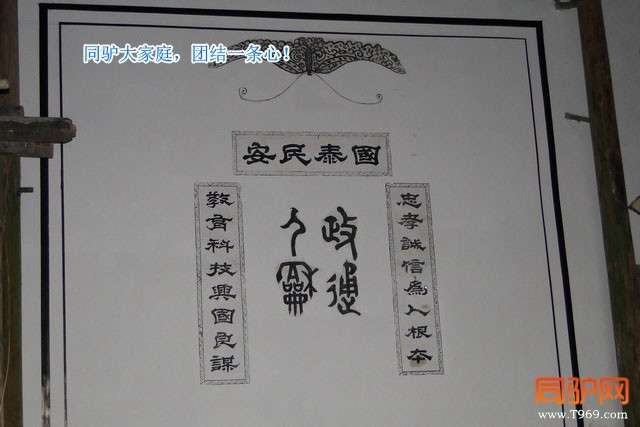 同驴大家庭，团结一条心！
國泰民安
忠孝誠信為人根本
政通
人龢
教育科技興國良謀
同驴网
www.T969.com